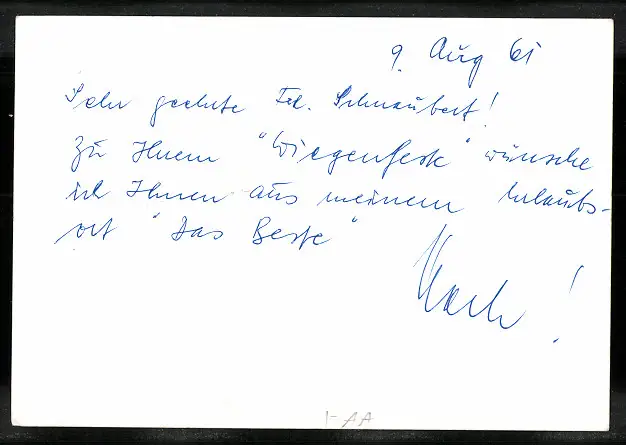 9. Aug 61
Sehr geehrte Frl. Schnaubert!
Zu Ihrem "Wiegenfeste" wünsche
ich Ihnen aus meinem Urlaubs-
ort "Das Beste"
!
I-AA